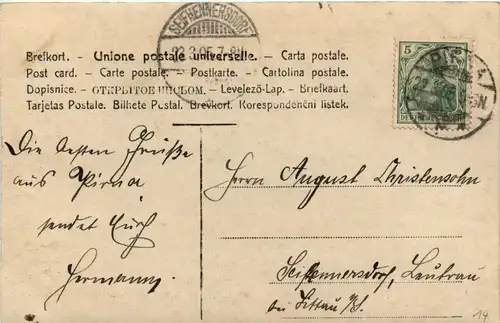 SEIFHENNERSDORF
23.3.05.7-8N
Brefkort. – Unione postale universelle. – Carta postale.
Post card. – Carte postale. – Postkarte. – Cartolina postale.
Dopisnice. – ОТКРЫТОЕ ПИСЬМО. – Levelező-Lap. – Briefkaart.
Tarjetas Postale. Bilhete Postal. Brevkort. Korespondenční listek.
5
PIRNA
Die besten Grüße
aus Pirna
sendet Euch
Hermann.
Herrn August Christensohn
Seifhennersdorf, Leutrau
bei Zittau i/S.
14